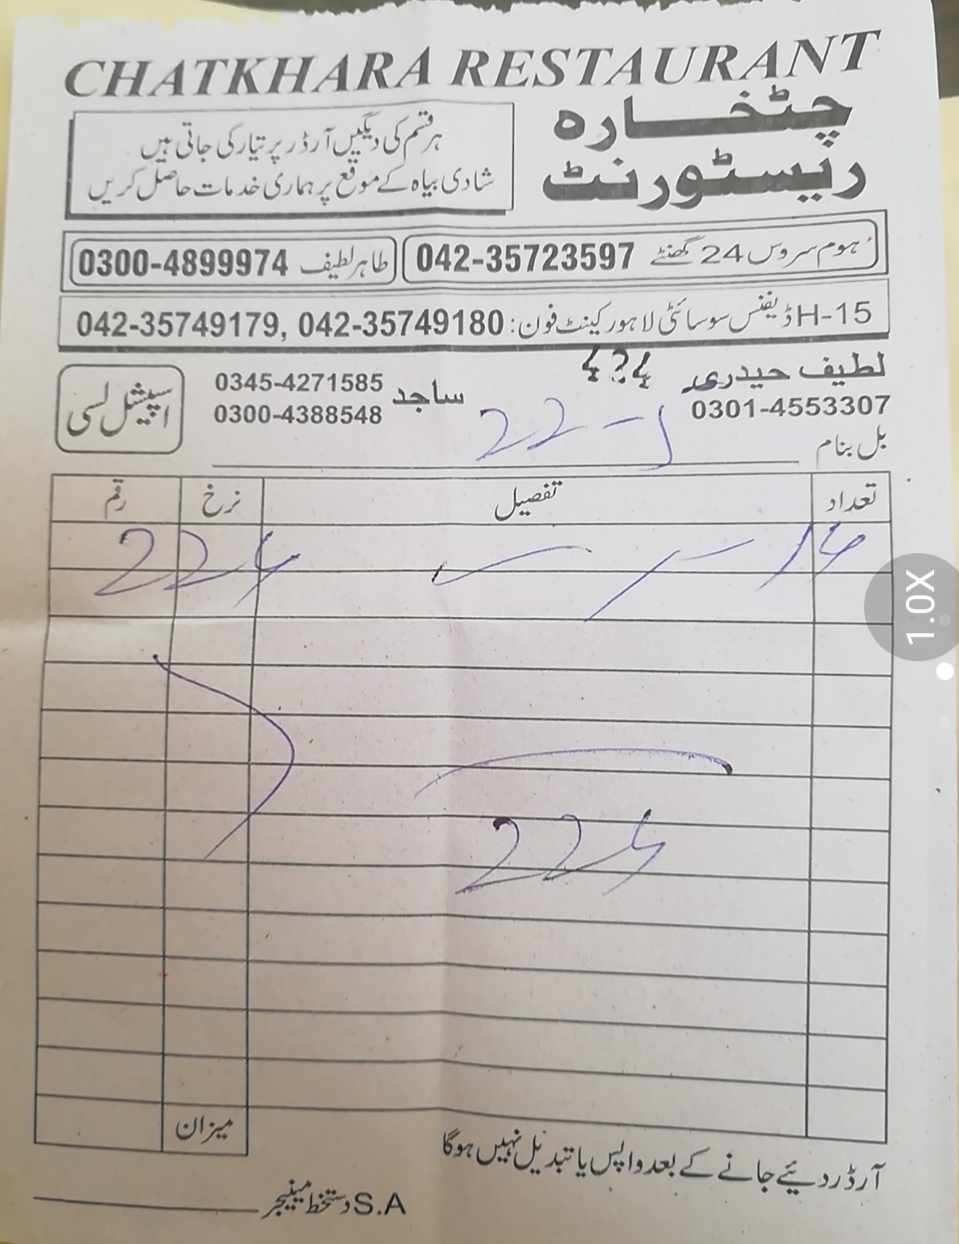 CHATKHARA RESTAURANT
چٹخارہ
ریسٹورنٹ
ہر قسم کی دیگیں آرڈر پر تیار کی جاتی ہیں
شادی بیاہ کے موقع پر ہماری خدمات حاصل کریں
ہوم سروس 24 گھنٹے 042-35723597
طاہر لطیف 0300-4899974
H-15 ڈیفنس سوسائٹی لاہور کینٹ فون: 042-35749179, 042-35749180
لطیف حیدری
0301-4553307
ساجد 0345-4271585
0300-4388548
اسپیشل لسی
بل بنام
تعداد تفصیل نرخ رقم
میزان
آرڈر دئیے جانے کے بعد واپس یا تبدیل نہیں ہوگا
S.A دستخط مینیجر
1.0X